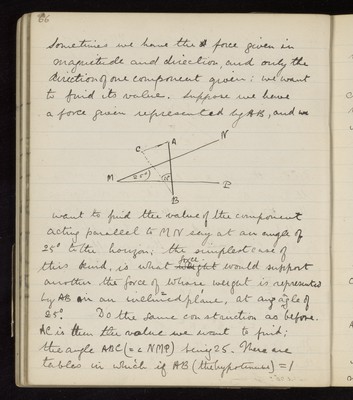 66
Sometimes we have the force given in
magnitude and direction, and only the
direction of one component given: we want
to find its value. Suppose we have
a force given represented by AB, and we
N
C A
M 25° P
B
want to find the value of the component
acting parallel to MN say at an angle of
25° to the horizon; the simplest case of
this kind, is what force would support
another the force of whose weight is represented
by AB on an inclined plane, at an angle of
25°. Do the same construction as before.
AC is then the value we want to find;
the angle ABC (= ∠ NMP) being 25. There are
tables in which if AB (the hypotenuse) = 1